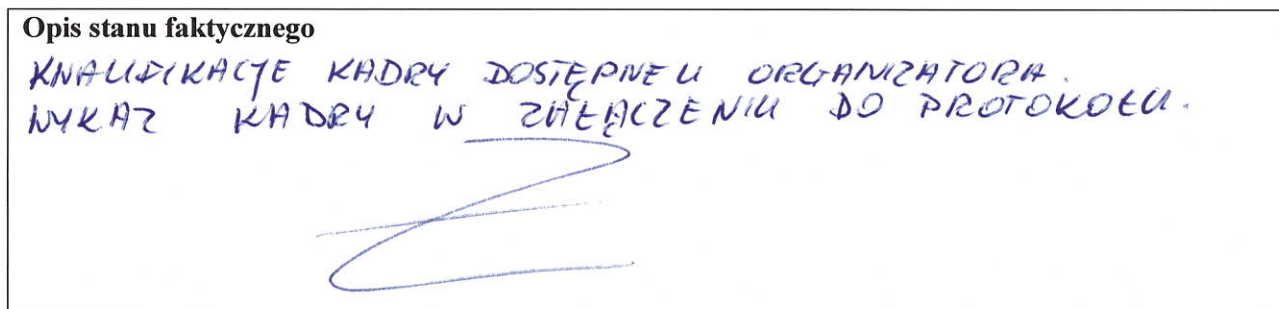 Opis stanu faktycznego
KWALIFIKACJE KADRY DOSTĘPNE U ORGANIZATORA.
WYKAZ KADRY W ZAŁĄCZENIU DO PROTOKOŁU.